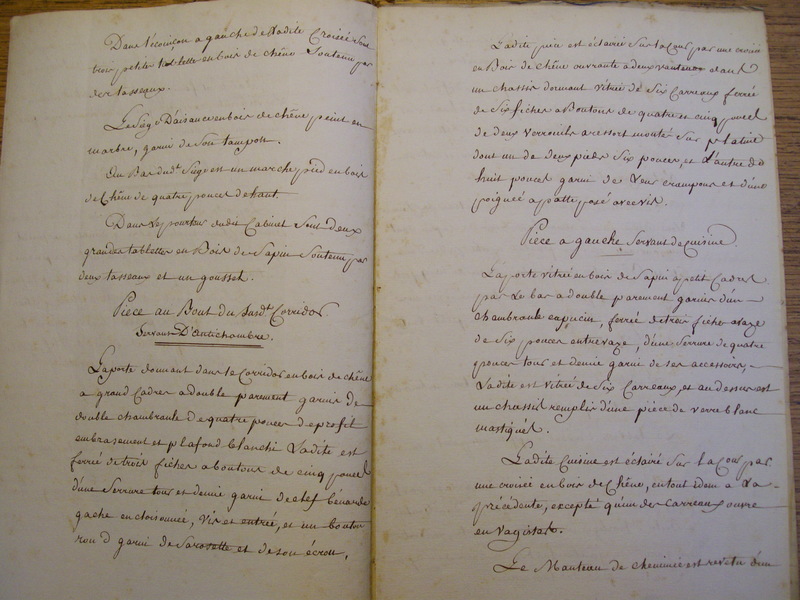 Dans l'écoinçon a gauche de Ladite Croisée Sont
trois petites tablette en bois de chêne Soutenu par
des tasseaux.
Le Siége D'aisance en bois de chêne peint en
marbre, garni de Son tampon.
Au Bas dudt. Siége est un marche pied en bois
de Chêne de quatre pouces de haut.
Dans Le pourtour dudit Cabinet Sont deux
grandes tablettes en Bois de Sapin Soutenu par
deux tasseaux et un gousset.
Piece au Bout du Susdt. Corridor
Servant D'antichambre.
La porte donnant dans le Corridor en bois de chêne
a grand Cadres a double parement garnie de
double chambranle de quatre pouces de profil
embrasement et plafond blanchi Ladite est
ferrée de trois fiches a boutons de cinq pouces
d'une Serrure tour et demie garni de clef bénarde
gache encloisonnée, vis et entrée, et un bouton
rond garni de Sa rosette et de son écrou.
Ladite piece est éclairée Sur la Cour par une croisée
en Bois de Chêne ouvrante a deux vanteaux dans
un chassis dormant vitrée de Six Carreaux ferrée
de Six fiches a Boutons de quatre et cinq pouces
de deux verrouils a ressort monté Sur platine
dont un de deux pieds Six pouces, et L'autre de
huit pouces garni de Leurs crampons et d'une
poignée a patte posé avec vis.
Piece a gauche Servant de cuisine.
La porte vitrée en bois de Sapin a petit Cadres
par Le bas a double parement garnie d'un
chambranle capucin, ferrée de trois fiches a vaze
de Six pouces entrevaze, d'une Serrure de quatre
pouces tour et demie garni de ses accessoires,
Ladite est vitrée de Six Carreaux, et au dessus est
un chassis remplis d'une piece de verre blanc
mastiqué.
Ladite Cuisine est éclairé Sur la Cour par
une croisée en bois de Chêne, en tout idem a La
précédente, excepté qu'un des Carreaux ouvre
en vagistas.
Le Manteau de cheminée est revetu d'un